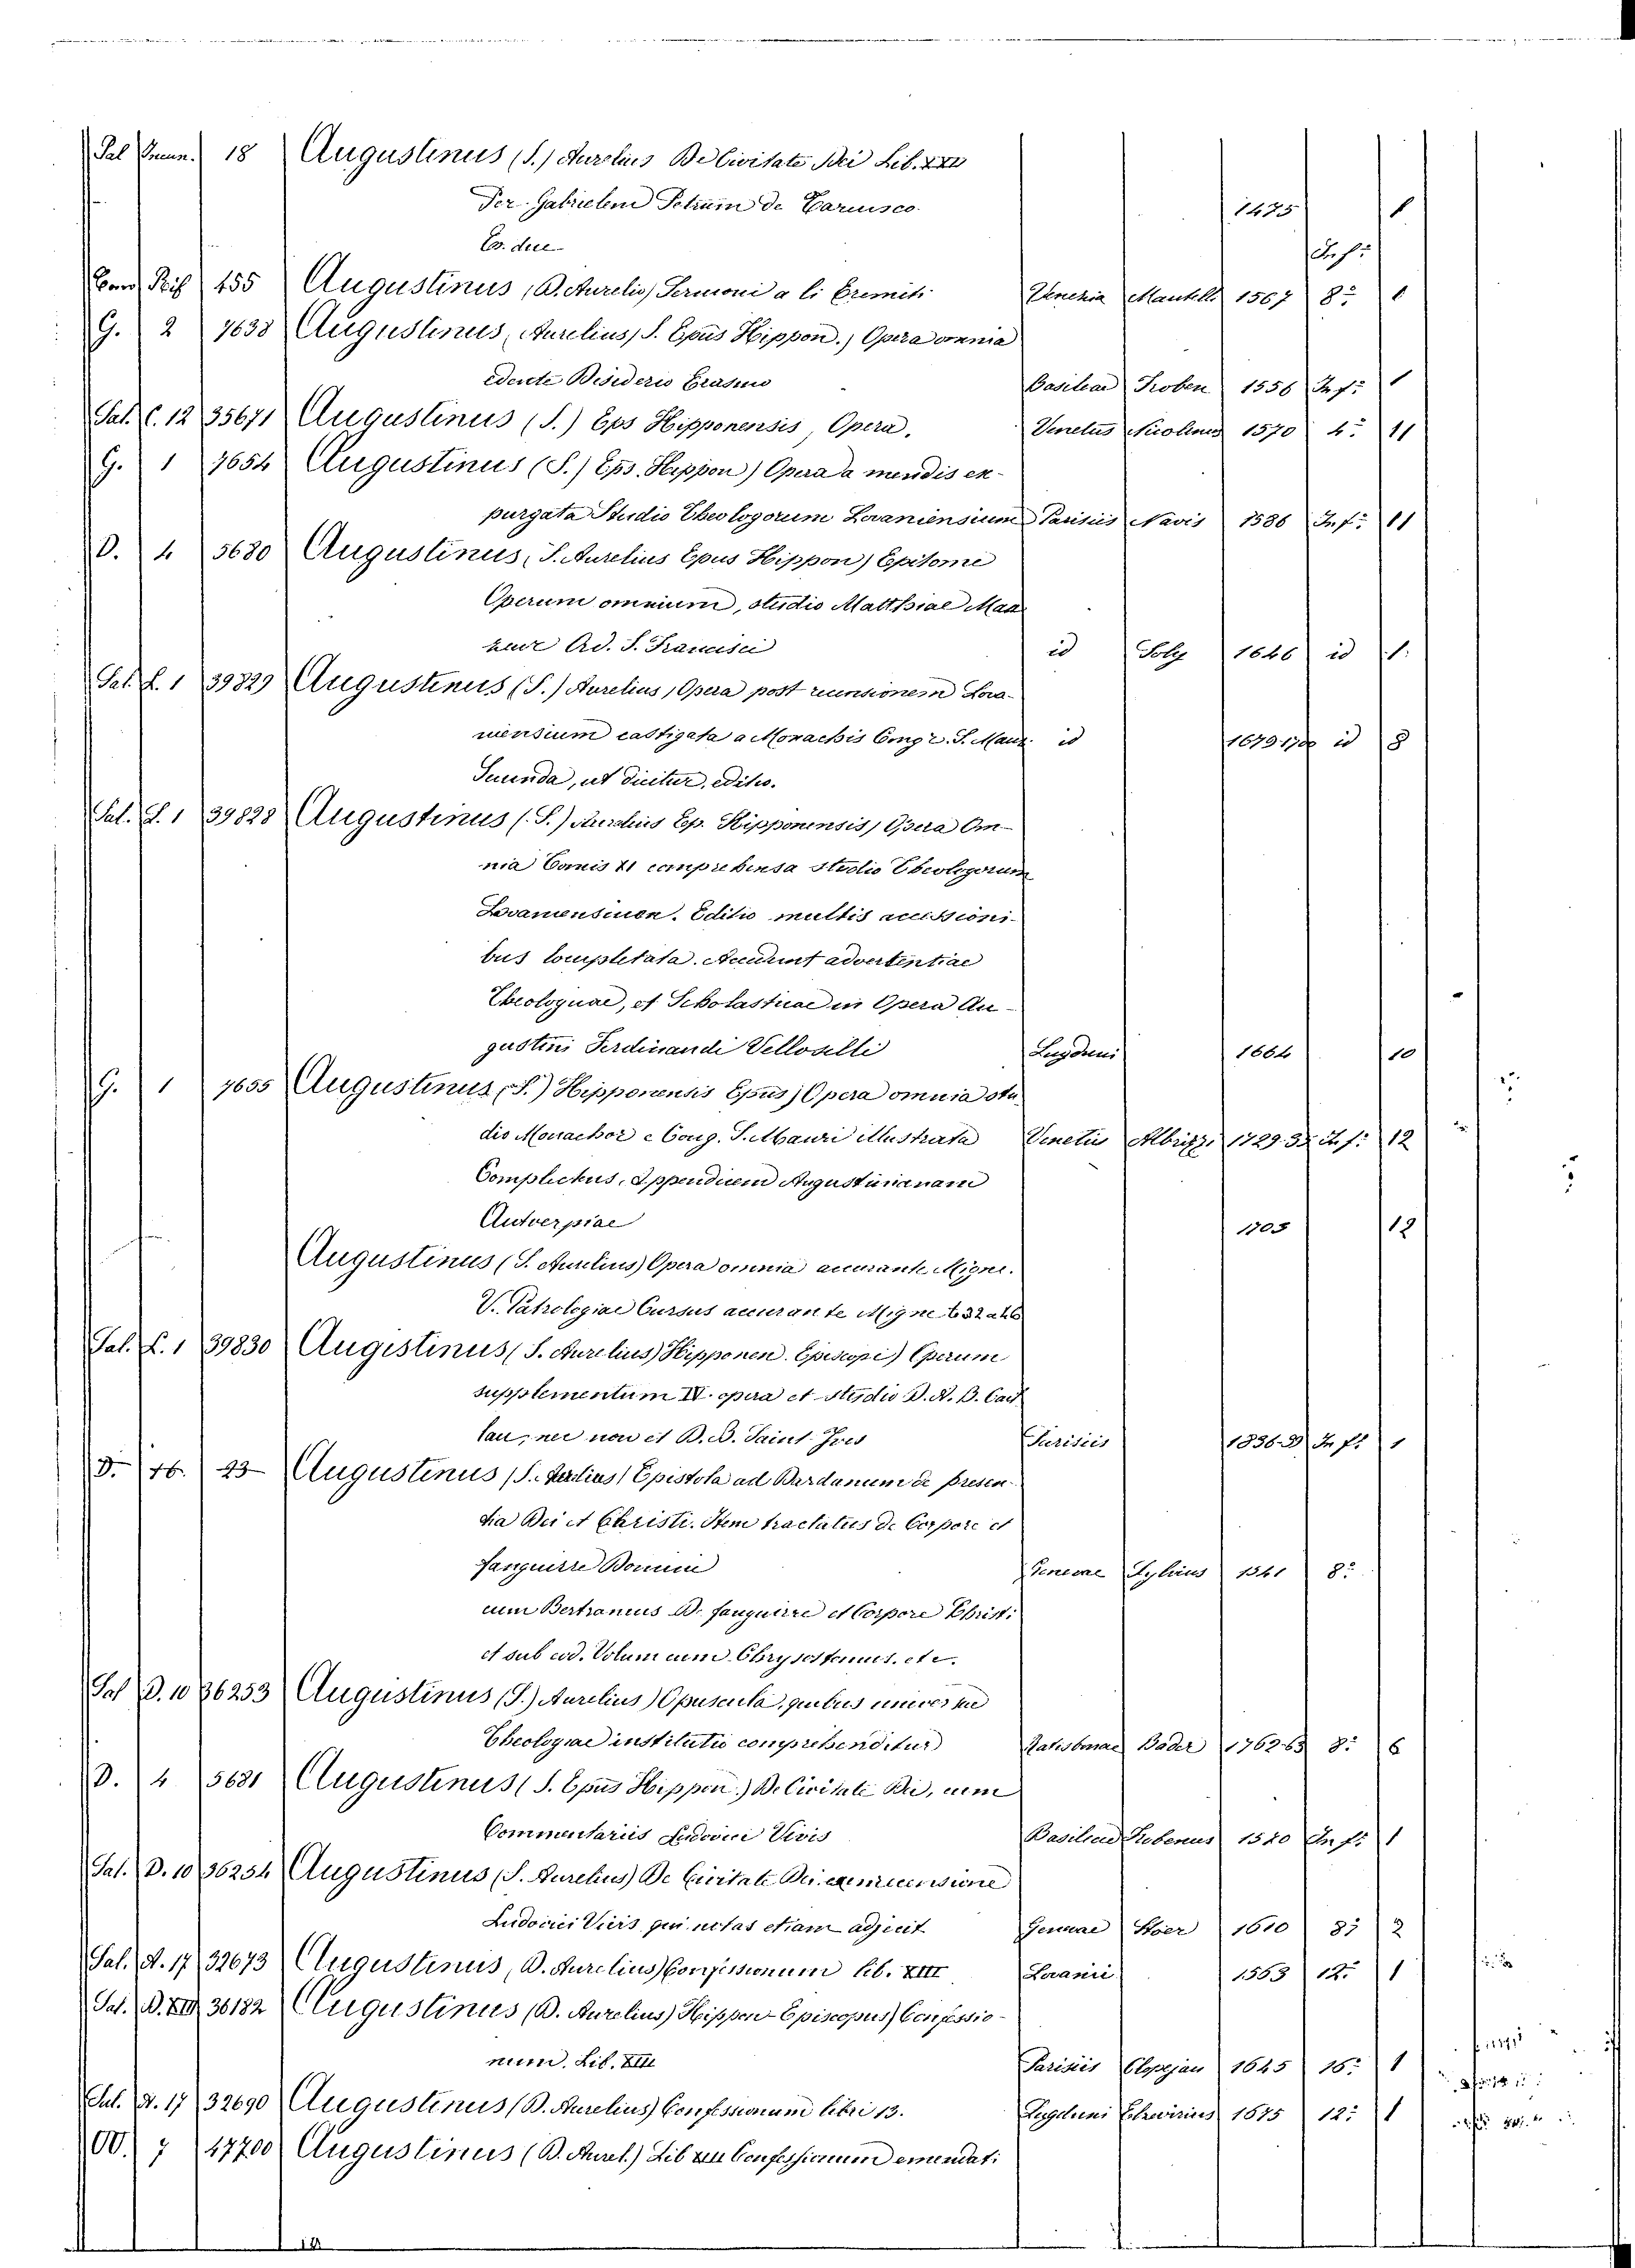 Sal Incun. 18 Augustinus (S.) Aurelius De Civitate Dei Lib. XXII
Per Gabrielem Petrum de 1475 1
Ex. due In f:
455 Augustinus (D. Aurelio) Sermoni a li Eremiti Venezia 1567 8: 1
G. 2 7638 Augustinus, Aurelius, S. Epus Hippon.) Opera omnia
edente Desiderio Erasmo Basileae Froben 1556 In f: 1
Sal. C. 12 35671 Augustinus (S.) Eps Hipponensis, Opera. Venetus Nicolinus 1570 4: 11
G. 1 7654 Augustinus (S.) Eps. Hippon) Opera a mendis ex-
purgata Studio Theologorum Lovaniensium Parisiis Navis 1586 In f: 11
D. 4 5680 Augustinus, S. Aurelius Epus Hippon) Epitome
Operum omnium, studio Matthiae
Ord. S. Francisci id Soly 1646 id 1.
Sal. L. 1 39829 Augustinus (S.) Aurelius, Opera post recensionem Lova-
niensium castigata a Monachis Cong. S. Maur. id 1679 1700 id 8
Secunda, ut dicitur, editio.
Sal. L. 1 39828 Augustinus (S.) Aurelius Ep. Hipponensis) Opera Om-
nia Tomis XI comprehensa studio Theologorum
Lovaniensium. Editio multis accessioni-
bus locupletata. Accedunt advertentiae
Theologicae, et Scholasticae in Opera Au-
gustini Ferdinandi Vellosilli Lugduni 1664 10
G. 1 7655 Augustinus, (S.) Hipponensis Epus) Opera omnia stu
dio Monachor e Cong. S. Mauri illustrata Venetiis Albrizzi 1729.35 In f: 12
Complectens Appendicem Augustinianam
Antverpiae 1703 12
Augustinus (S. Aurelius) Opera omnia accurante Migne.
V. Patrologiae Cursus accurante Migne t. 32 a 46
Sal. L. 1 39830 Augistinus (S. Aurelius) Hipponen. Episcopi) Operum
supplementum IV. opera et studio D. A. B. Cail
lau, nec non et D. B. Saint-Yves Parisiis 1836-39 In f: 1
D. 16. 23 Augustinus (S. Aurelius) Epistola ad Dardanum de presen-
tia Dei et Christi. Item tractatus de Corpore et
sanguine Domini Genevae Sylvius 1541 8:
cum Bertramus D. sanguine et Corpore Christi
et sub eod. Volum cum Chrysostomus. etc.
Sal D. 10 36253 Augustinus (S.) Aurelius) Opuscula, quibus universae
Theologiae institutio comprehenditur Ratisbonae Bader 1762-63 8: 6
D. 4 5681 Augustinus (S. Epus Hippon.) De Civitate Dei, cum
Commentariis Ludovici Vivis Basileae Frobenius 1520 In f: 1
Sal. D. 10 36254 Augustinus (S. Aurelius) De Civitate Dei
Ludovici Vivis qui notas etiam adjecit Genevae Stoer 1610 8: 2
Sal. A. 17 32673 Augustinus, D. Aurelius) Confessionum lib. XIII Lovanii 1563 12: 1
Sal. D. XIII 36182 Augustinus (D. Aurelius) Hippon Episcopus) Confessio-
num. Lib. XIII Parisiis Clopejau 1645 16: 1
Sal. A. 17 32690 Augustinus (D. Aurelius) Confessionum libri 13. Lugduni Elzevirius 1675 12: 1
OO. 7 47700 Augustinus (D. Aurel.) Lib XIII Confessionum emendati